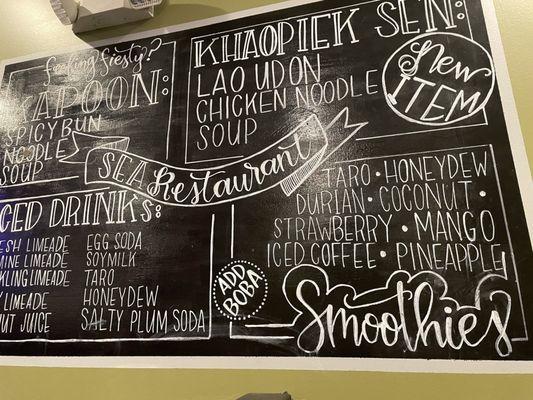 feeling fiesty?
KAPOON:
SPICY BUN
NOODLE
SOUP
KHAOPIEK SEN:
LAO UDON
CHICKEN NOODLE
SOUP
New
ITEM
SEA Restaurant
ICED DRINKS:
FRESH LIMEADE
LIMEADE
SPARKLING LIMEADE
LIMEADE
JUICE
EGG SODA
SOYMILK
TARO
HONEYDEW
SALTY PLUM SODA
ADD
BOBA
TARO • HONEYDEW
DURIAN • COCONUT •
STRAWBERRY • MANGO
ICED COFFEE • PINEAPPLE
Smoothies